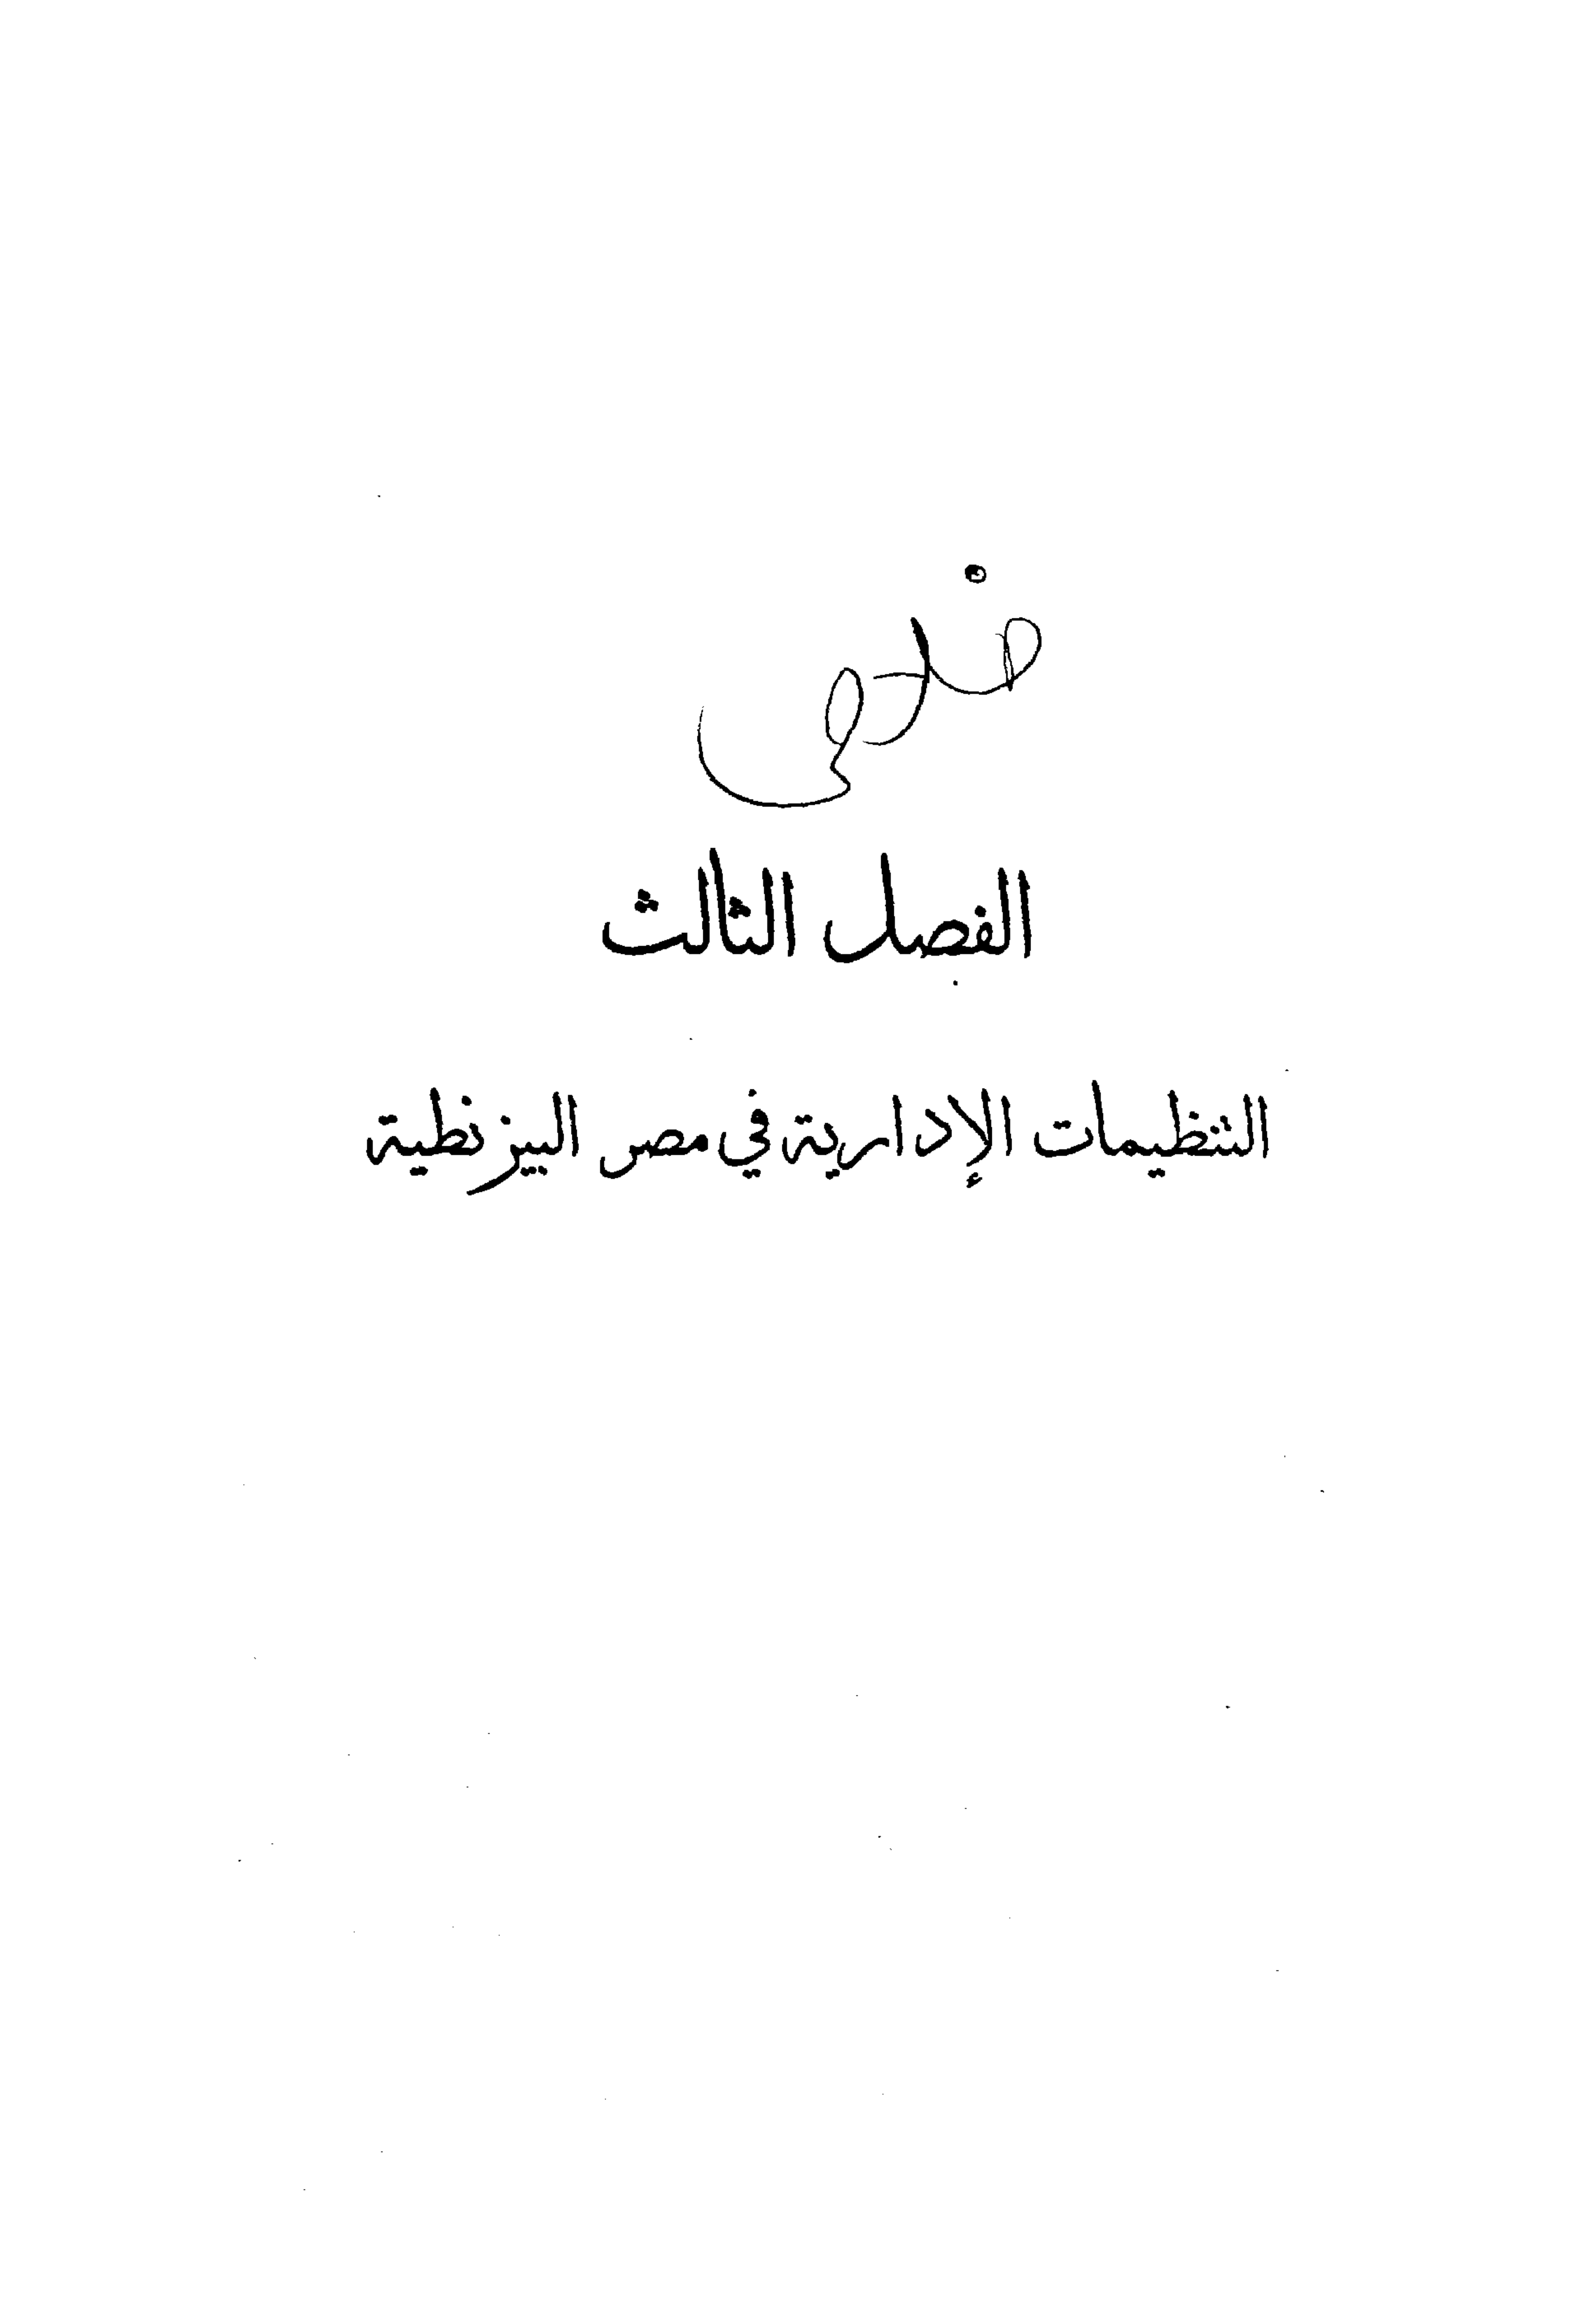 الفصل الثالث
التنظيمات الإدارية في مصر البيزنطية